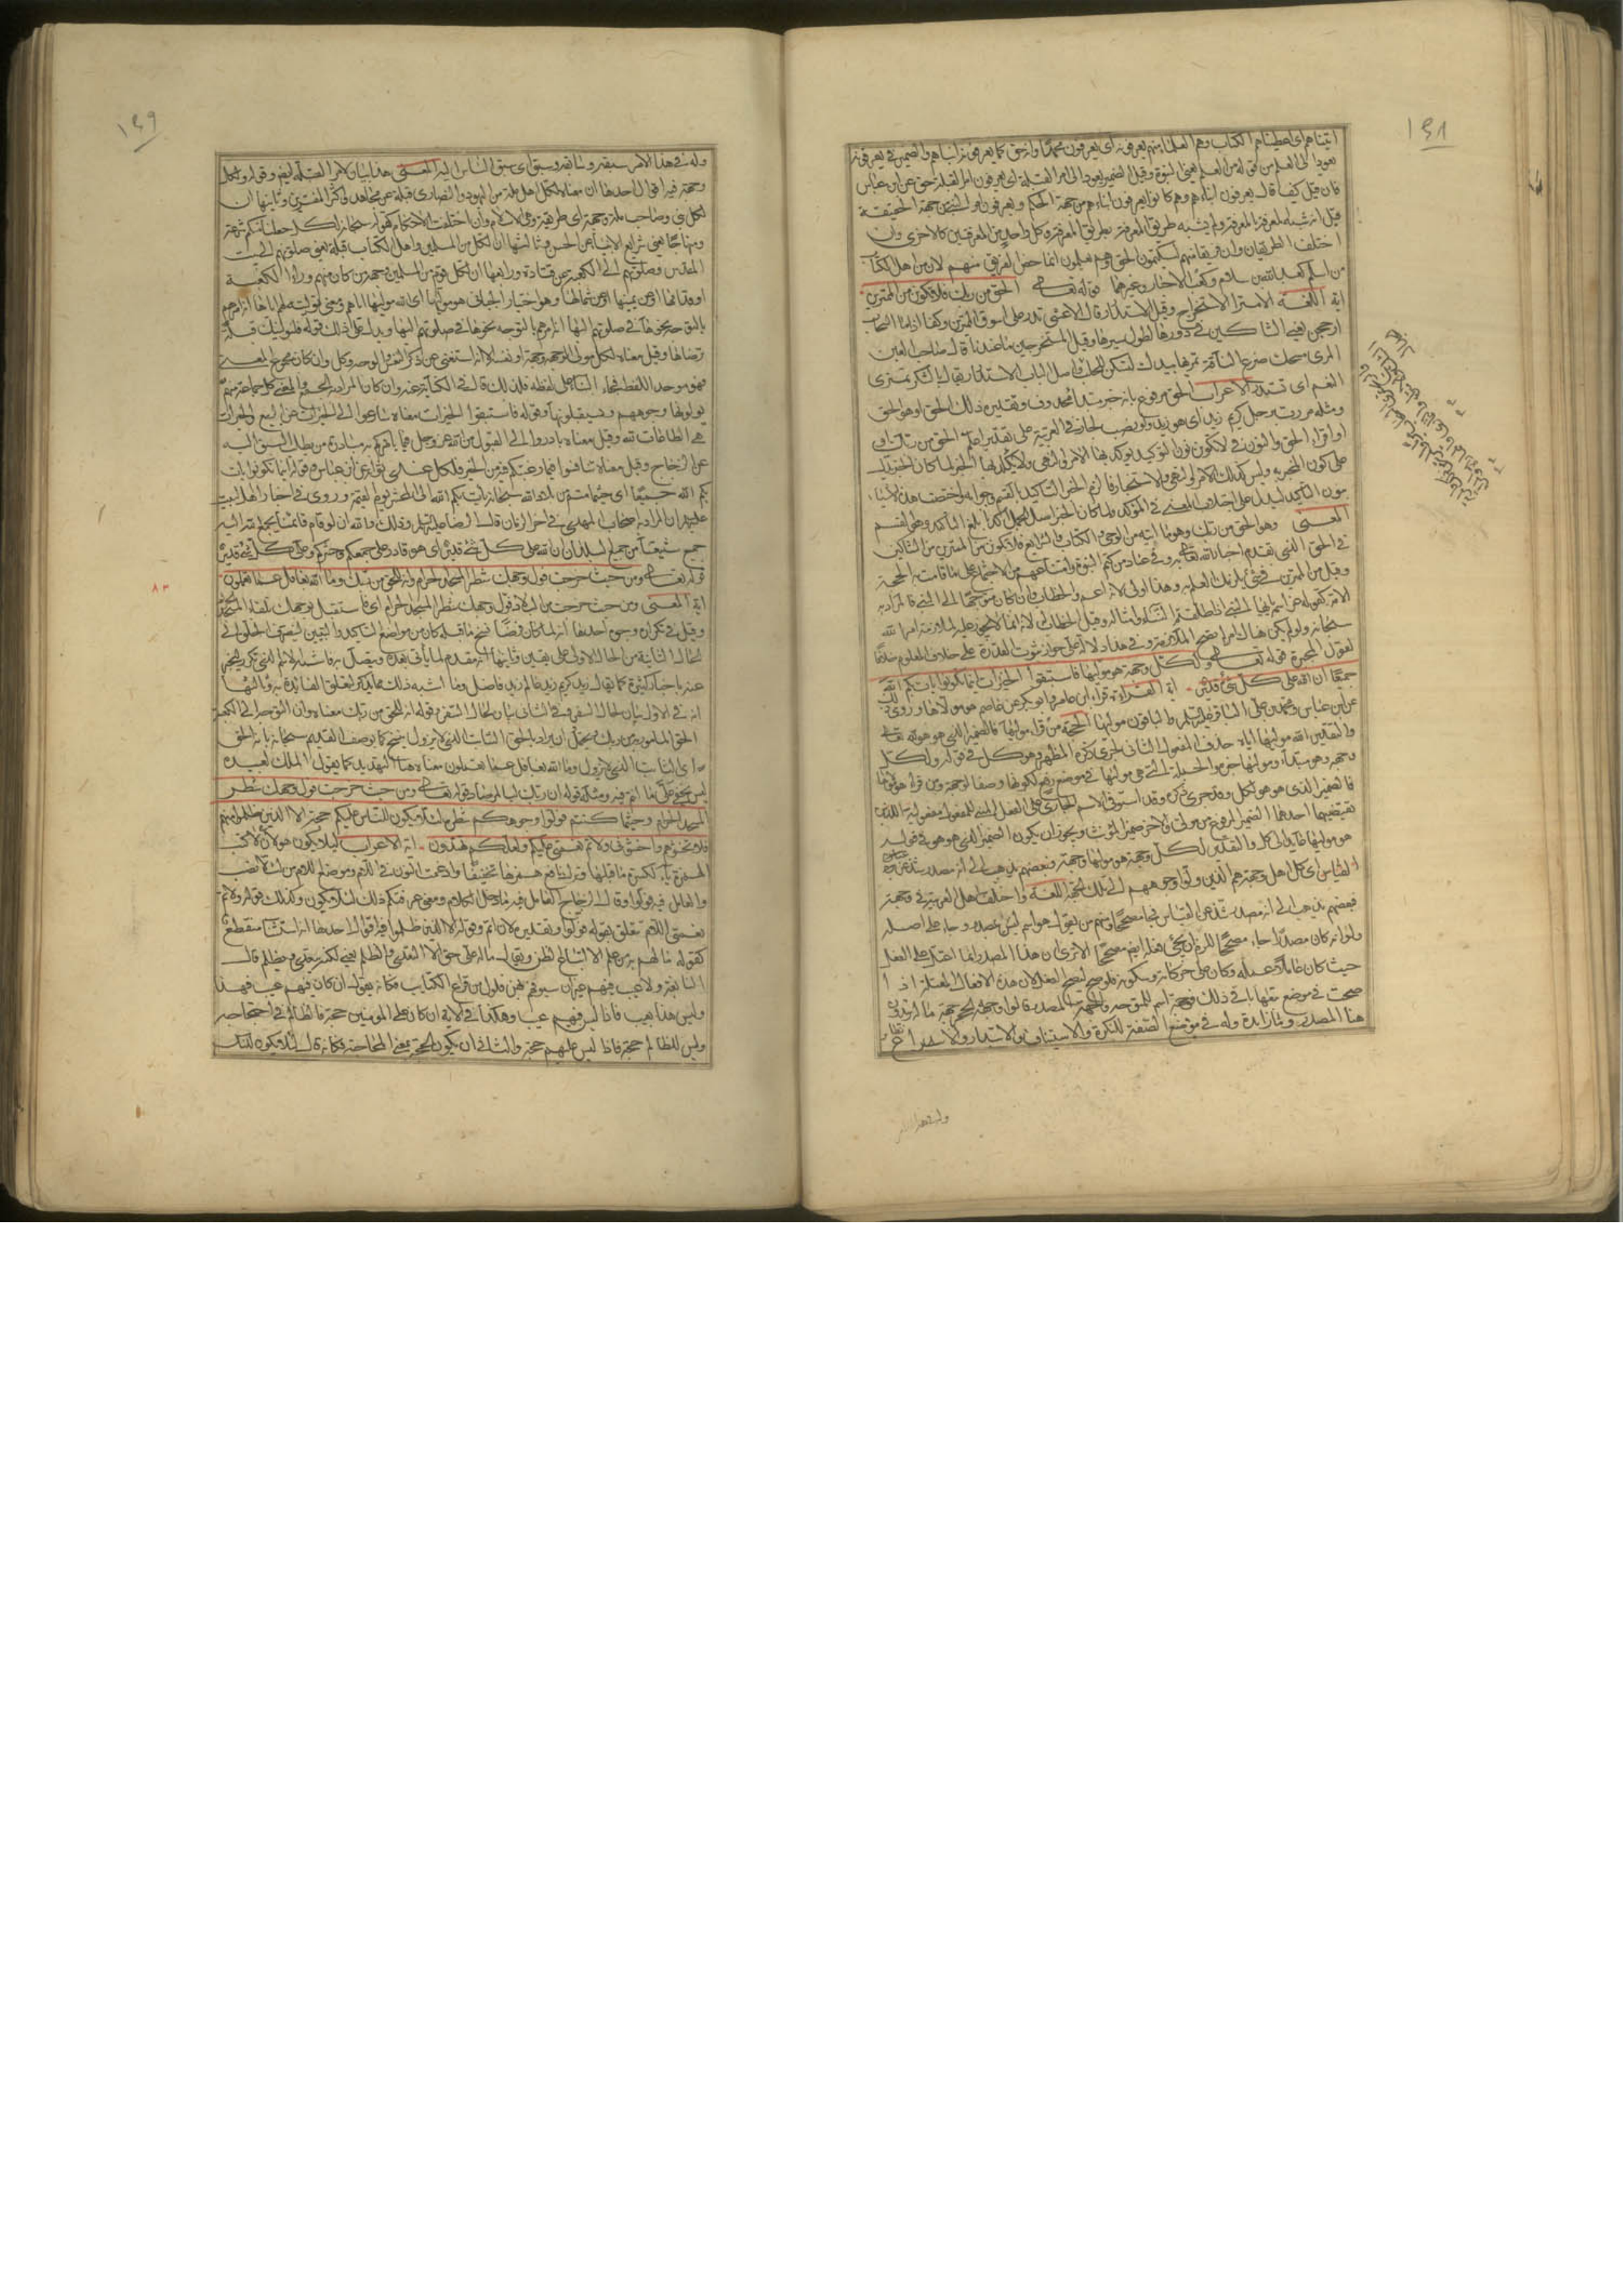 ١٤٨
اتيناهم اى اعطيناهم الكتاب وهم العلماء منهم يعرفونه اى يعرفون محمدا وانه حق كما يعرفون ابناءهم والضمير فى يعرفونه
يعود الى العلم من قوله من العلم يعنى النبوة وقيل الضمير يعود الى امر القبلة اى يعرفون امر القبلة حق عن ابن عباس
فان قيل كيف قال يعرفون ابناءهم وهم كانوا يعرفون ابناءهم من جهة الحكم ويعرفون امر النبى من جهة الحقيقة
قيل انه شبه المعرفة بالمعرفة ولم يشبه طريق المعرفة بطريق المعرفة وكل واحد من المعرفتين كالاخرى وان
اختلف الطريقان وان فريقا منهم ليكتمون الحق وهم يعلمون انما خص الفريق منهم لان من اهل الكتاب
من اسلم كعبد الله بن سلام وكعب الاحبار وغيرهما قوله تعالى الحق من ربك فلا تكونن من الممترين
اية اللغة الامتراء الاستخراج وقيل الاستدرار قال الاعشى تدر على اسوق الممترين ركضا اذا ما السراب
ارجحن يعنى الشاكين فى درورها لطول سيرها وقيل المستخرجين ما عندها قال صاحب العين
المرى مسحك ضرع الناقة تمريها بيدك لتسكن للحلب
الغيم اى تستدره الاعراب الحق مرفوع بانه خبر مبتدا محذوف وتقديره ذلك الحق او هو الحق
ومثله مررت برجل كريم زيد اى هو زيد ولو نصب لجاز فى العربية على تقدير اعلم الحق من ربك
او اقراء الحق والنون فى لا تكونن نون التوكيد يوكد بها الامر والنهى ولا يوكد بها الخبر لما كان
على كون المخبر به وليس كذلك الامر والنهى والاستخبار فالزم الخبر التاكيد بالقسم وجوابه واختصت هذه الاشياء
بنون التاكيد ليدل على اختلاف المعنى فى المؤكد ولما كان الخبر اصل الجمل اكد بابلغ التاكيد وهو القسم
المعنى وهو الحق من ربك وهو ما اتيته من الوحى والكتاب والشرايع فلا تكونن من الممترين من الشاكين
فى الحق الذى تقدم اخبار الله تعالى به وفى عناد من كتم النبوة وامتناعهم من الاجتماع على ما قامت به الحجة
وقيل من الممترين فى شئ يلزمك العلم به وهذا اولى لانه اعم والخطاب وان كان متوجها الى النبى فالمراد به
الامة كقوله
سبحانه ولو لم يكن هناك امر لم يصح الملازمة وفى هذا دلالة على جواز ثبوت القدرة على خلاف المعلوم خلافا
لقول المجبرة قوله تعالى ولكل وجهة هو موليها فاستبقوا الخيرات اينما تكونوا يات بكم الله
جميعا ان الله على كل شئ قدير اية القراءة قراء ابن عامر وابو بكر عن عاصم هو مولاها وروى ذلك
عن ابن عباس ومحمد بن على الباقر عليه السلم والباقون موليها الحجة من قراء موليها فالضمير الذى هو هو لله تعالى
والتقدير الله موليها اياه حذف المفعول الثانى لجرى ذكره المظهر وهو كل فى قوله ولكل
وجهة وهو مبتداء وموليها خبره والجملة التى هى موليها فى موضع رفع لكونها وصفا لوجهة ومن قراء هو مولاها
فالضمير الذى هو هو لكل وقد جرى ذكره وقد استوفى الاسم الجارى على الفعل المبنى للمفعول مفعوليه اللذين
يقتضيهما احدهما الضمير المرفوع من مولى والاخر ضمير المؤنث ويجوز ان يكون الضمير الذى هو هو فى قوله
هو موليها عايدا الى كل والتقدير لكل وجهة هو موليها وجهه
اى كل اهل وجهة هم الذين ولوا وجوههم الى تلك الجهة اللغة واختلف اهل العربية فى وجهة
فبعضهم يذهب الى انه مصدر شذ عن القياس فجاء مصححا ومنهم من يقول هو اسم ليس بمصدر وجاء على اصله
ولو انه كان مصدرا جاء مصححا للزم ان يجئ فعله ايضا مصححا الا ترى ان هذا المصدر انما اعتل على الفعل
حيث كان عاملا عمله وكان على حركاته وسكونه فلو صح لصح الفعل لان هذه الافعال المعتلة اذا
صحت فى موضع تبعها باقى ذلك فوجهة اسم للمتوجه والجهة المصدر قالوا وجه الحجر جهة ما له يريدون
هنا المصدر وما زايدة وله فى موضع الصفة للنكرة والاستباق والابتدار والاسراع نظائر
١٤٩
وله فى هذا الامر سبقة وسابقة وسبق اى سبق الناس اليه المعنى هذا بيان لامر القبلة ايضا وقوله ولكل
وجهة فيه اقوال احدها ان معناه لكل اهل ملة من اليهود والنصارى قبلة عن مجاهد واكثر المفسرين وثانيها ان
لكل نبى وصاحب ملة وجهة اى طريقة وهى الاسلام وان اختلفت الاحكام كقوله سبحانه لكل جعلنا منكم شرعة
ومنهاجا يعنى شرايع الانبياء عن الحسن وثالثها ان لكل من المسلمين واهل الكتاب قبلة يعنى صلوتهم الى بيت
المقدس وصلوتهم الى الكعبة عن قتادة ورابعها ان لكل قوم من المسلمين وجهة من كان منهم وراء الكعبة
او قدامها او عن يمينها او عن شمالها وهو اختيار الجبائى هو موليها اى الله موليها اياهم ومعنى توليته لهم اياها انه امرهم
بالتوجه نحوها فى صلوتهم اليها انه امرهم بالتوجه نحوها فى صلوتهم اليها ويدل على ذلك قوله فلنولينك قبلة
ترضاها وقيل معناه لكل مولى الوجهة وجهه او نفسه الا انه استغنى عن ذكر النفس والوجه وكل وان كان مجموع المعنى
فهو موحد اللفظ فجاء البناء على لفظه فلذلك قال هو فى الكناية عنه وان كان المراد به الجمع والمعنى كل جماعة منهم
يولونها وجوههم ويستقبلونها وقوله فاستبقوا الخيرات معناه سارعوا الى الخيرات عن الربيع والخيرات
هى الطاعات لله وقيل معناه بادروا الى القبول من الله عز وجل فيما يامركم به مبادرة من يطلب السبق اليه
عن الزجاج وقيل معناه تنافسوا فيما رغبتكم فيه من الخير فلكل عندى ثوابه عن ابن عباس وقوله اينما تكونوا يات
بكم الله جميعا اى حيثما متم من بلاد الله سبحانه يات بكم الله الى المحشر يوم القيمة وروى فى اخبار اهل البيت
عليهم السلم ان المراد به اصحاب المهدى فى اخر الزمان قال الرضا عليه السلم وذلك والله ان لو قام قائمنا يجمع الله اليه
جميع شيعتنا من جميع البلدان ان الله على كل شئ قدير اى هو قادر على جمعكم وحشركم وعلى كل شئ قدير
قوله تعالى ومن حيث خرجت فول وجهك شطر المسجد الحرام وانه للحق من ربك وما الله بغافل عما تعملون
اية المعنى ومن حيث خرجت من البلاد فول وجهك شطر المسجد الحرام اى فاستقبل بوجهك تلقاء المسجد
وقيل فى تكراره وجوه احدها انه لما كان فرضا نسخ ما قبله كان من مواضع التاكيد والتبيين لينصرف الخلق الى
الحالة الثانية من الحالة الاولى على يقين وثانيها انه مقدم لما ياتى بعده ويتصل به فاشبه الاسم الذى تكرر ليخبر
عنه باخبار كثيرة كما يقال زيد كريم زيد عالم زيد فاضل وما اشبه ذلك مما يذكر لتعلق الفائدة به وثالثها
انه فى الاول بيان لحال السفر وفى الثانى بيان لحال السفر وقوله انه للحق من ربك معناه وان التوجه الى الكعبة
الحق المامور به من ربك ويحتمل ان يراد بالحق الثابت الذى لا يزول بنسخ كما يوصف القديم سبحانه بانه الحق
اى الثابت الذى لا يزول وما الله بغافل عما تعملون معناه هنا التهديد كما يقول الملك لعبيده
ليس يخفى على ما انتم فيه ومثله قوله ان ربك لبالمرصاد قوله تعالى ومن حيث خرجت فول وجهك شطر
المسجد الحرام وحيثما كنتم فولوا وجوهكم شطره لئلا يكون للناس عليكم حجة الا الذين ظلموا منهم
فلا تخشوهم واخشونى ولاتم نعمتى عليكم ولعلكم تهتدون اية الاعراب لئلا يكون هؤلاء لاكتب
الهمزة ياء لكسرة ما قبلها وترك نافع همزها تخفيفا وادغمت النون فى اللام وموضع اللام من لئلا نصب
والعامل فيه فولوا وقال الزجاج العامل فيه ما دخل الكلام من معنى عرفتكم ذلك لئلا يكون وكذلك قوله ولاتم
نعمتى اللام تتعلق بقوله فولوا وتقديره لان اتم وقوله الا الذين ظلموا فيه اقوال احدها انه استثناء منقطع
كقوله ما لهم به من علم الا اتباع الظن ويقال ماله على حق الا التعدى والظلم يعنى لكنه يتعدى ويظلم قال
النابغة ولا عيب فيهم غير ان سيوفهم بهن فلول من قراع الكتايب فكانه يقول ان كان فيهم عيب فهذا
وليس هذا بعيب فاذا ليس فيهم عيب وهكذا فى الاية ان كان على المومنين حجة فالظالم فى احتجاجه
وليس للظالم حجة فاذا ليس عليهم حجة والثانى ان يكون الحجة بمعنى المحاجة فكانه قال لئلا يكون للناس